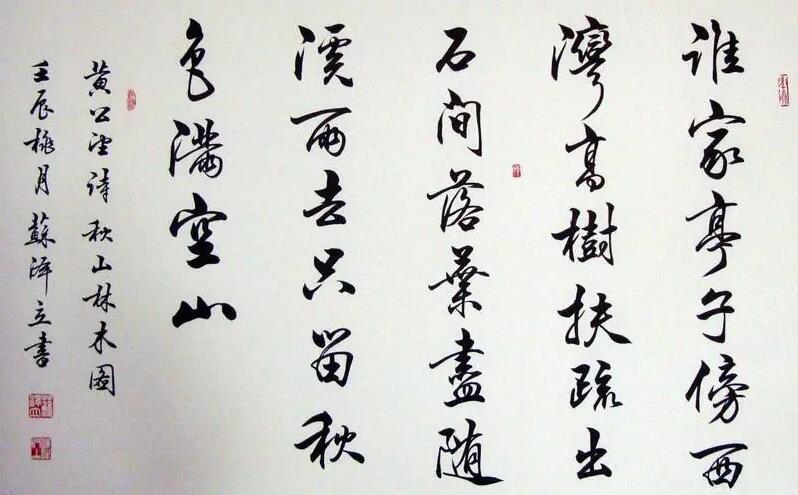 誰家亭子傍西
灣高樹扶疏出
石間落葉盡隨
溪雨去只留秋
色滿空山
黃公望詩秋山林木圖
壬辰桃月蘇澤立書